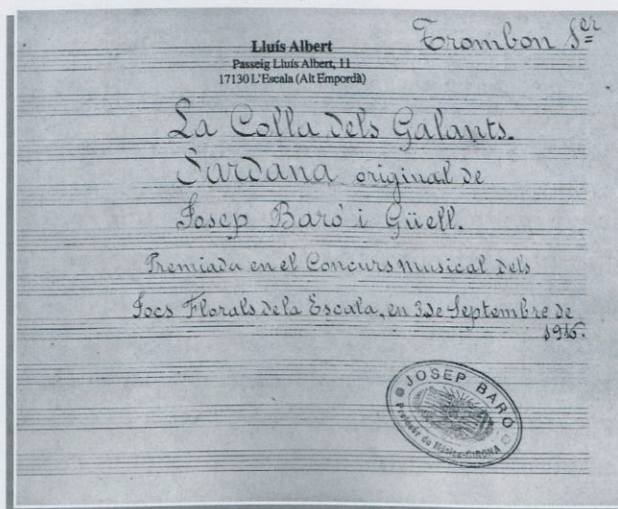 Trombon 1er
Lluís Albert
Passeig Lluís Albert, 11
17130 L'Escala (Alt Empordà)
La Colla dels Galants.
Sardana original de
Josep Baró i Güell.
Premiada en el Concurs musical dels
Jocs Florals dela Escala, en 3 de Septembre de
1916.
JOSEP BARÓ
Professor de Música-GIRONA